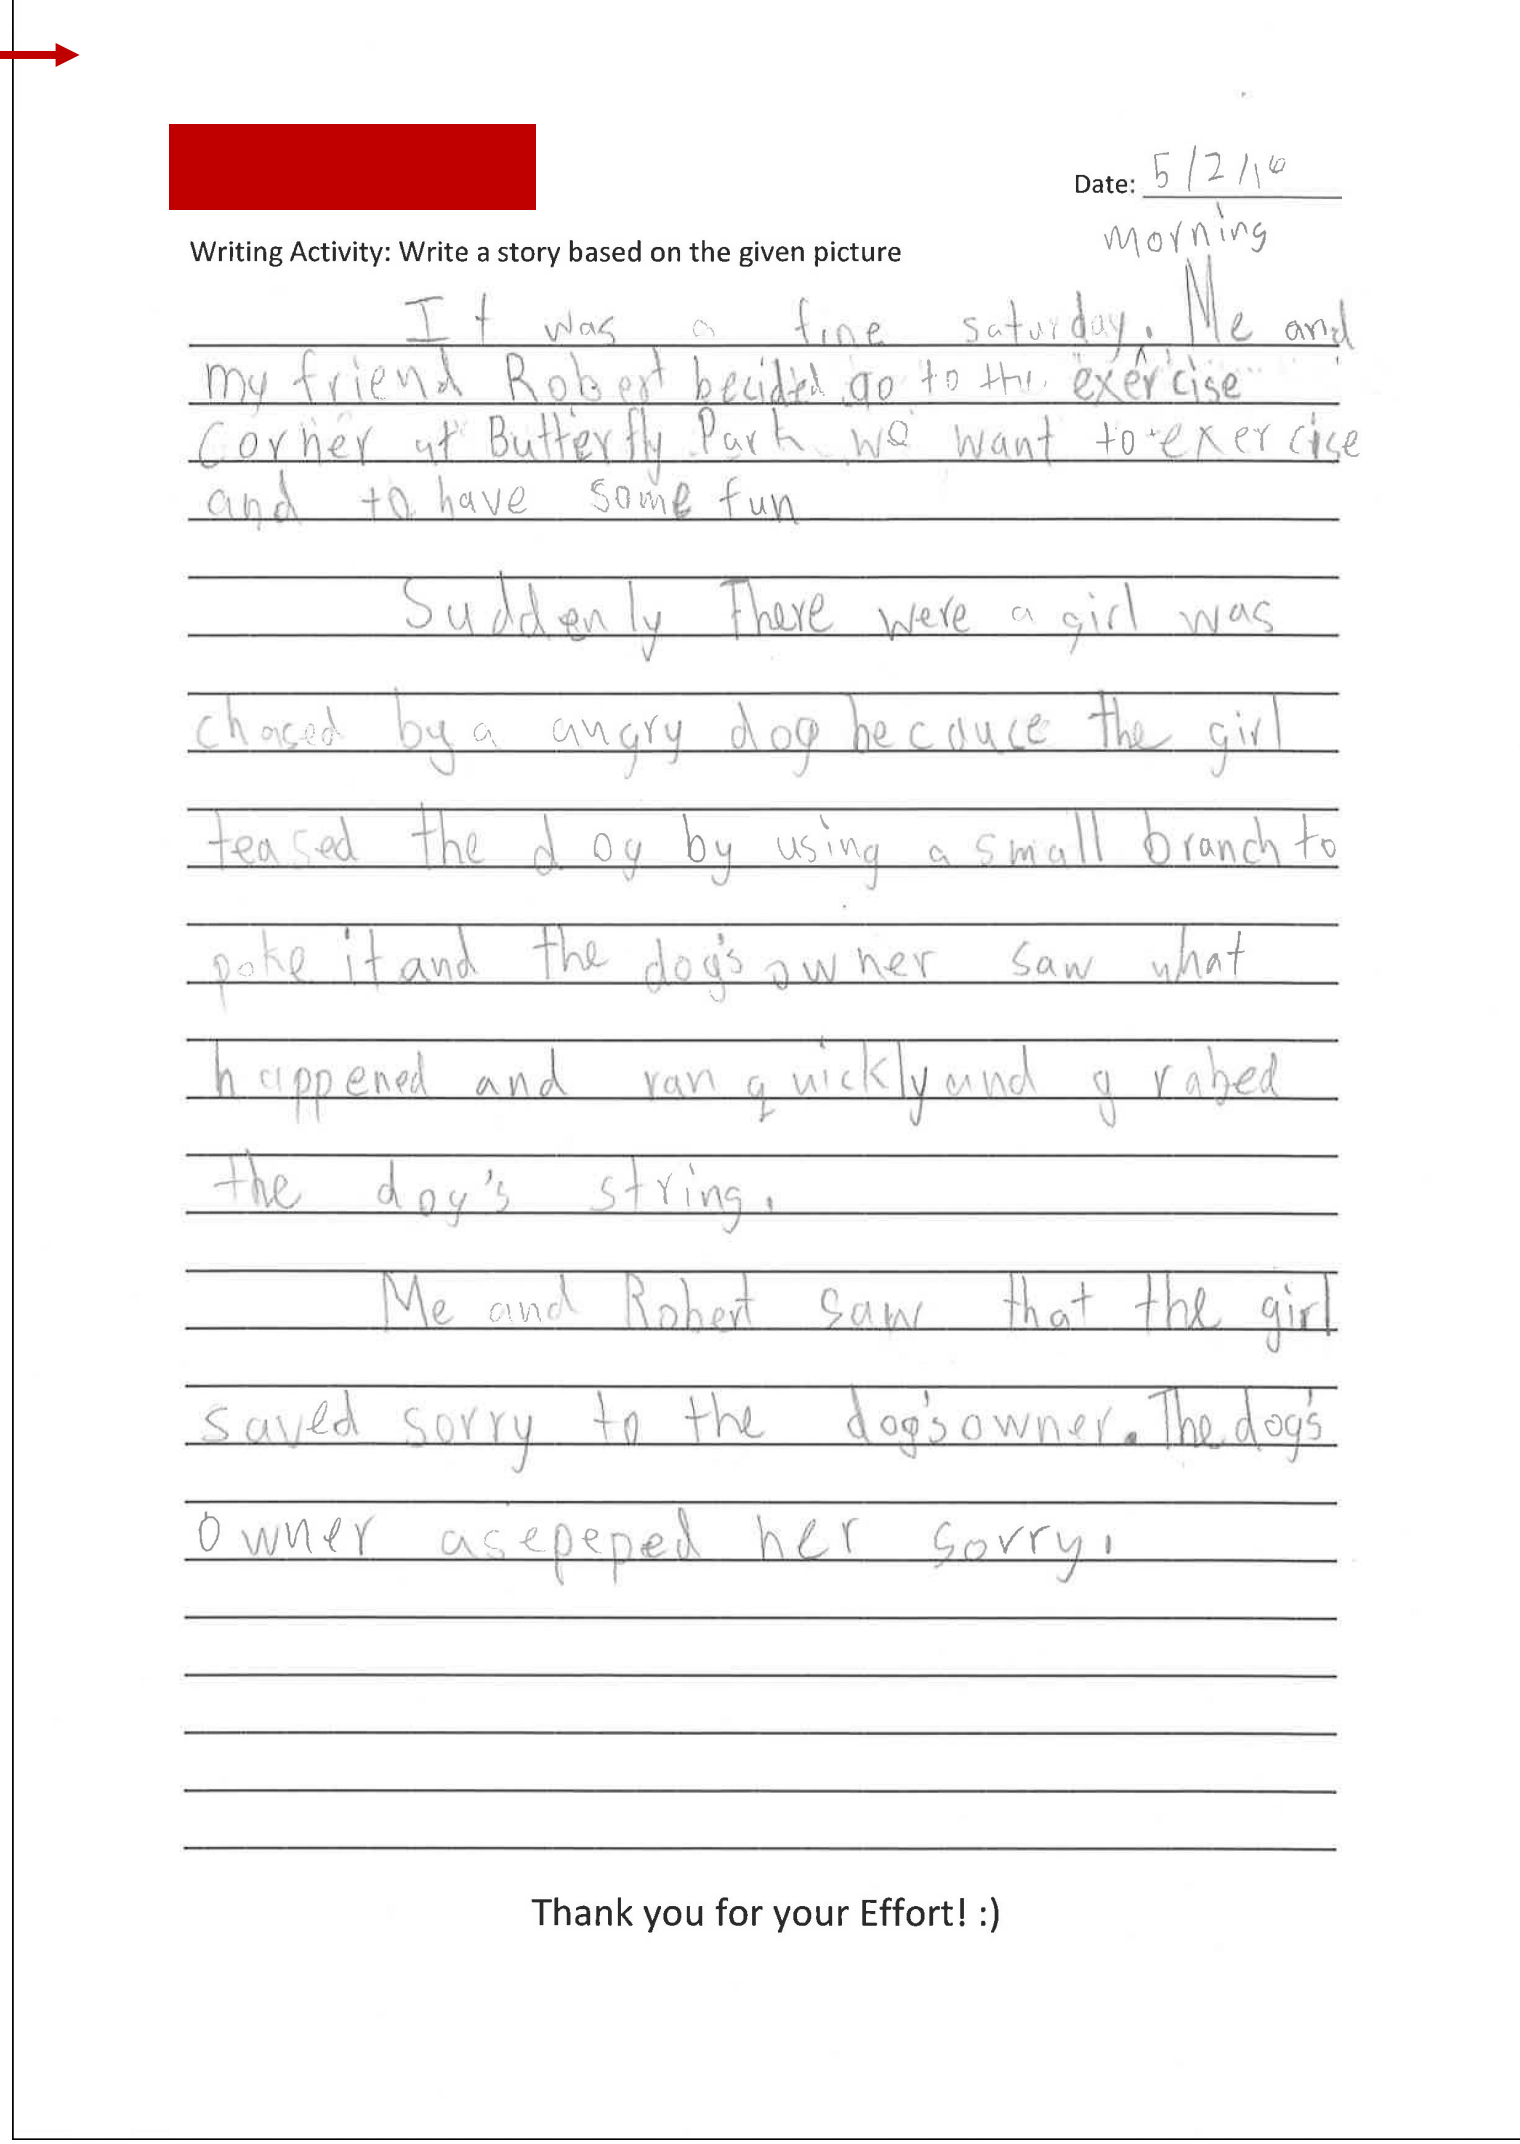 Date: 5/2/16
Writing Activity: Write a story based on the given picture
morning
It was a fine saturday. Me and
my friend Robert becided go to the exercise
Corner at Butterfly Park we want to exercise
and to have some fun
Suddenly There were a girl was
chased by a angry dog becauce the girl
teased the dog by using a small branch to
poke it and the dog's owner saw what
happened and ran quickly and grabed
the dog's string.
Me and Robert saw that the girl
saved sorry to the dog's owner. The dog's
owner asepeped her sorry.
Thank you for your Effort! :)